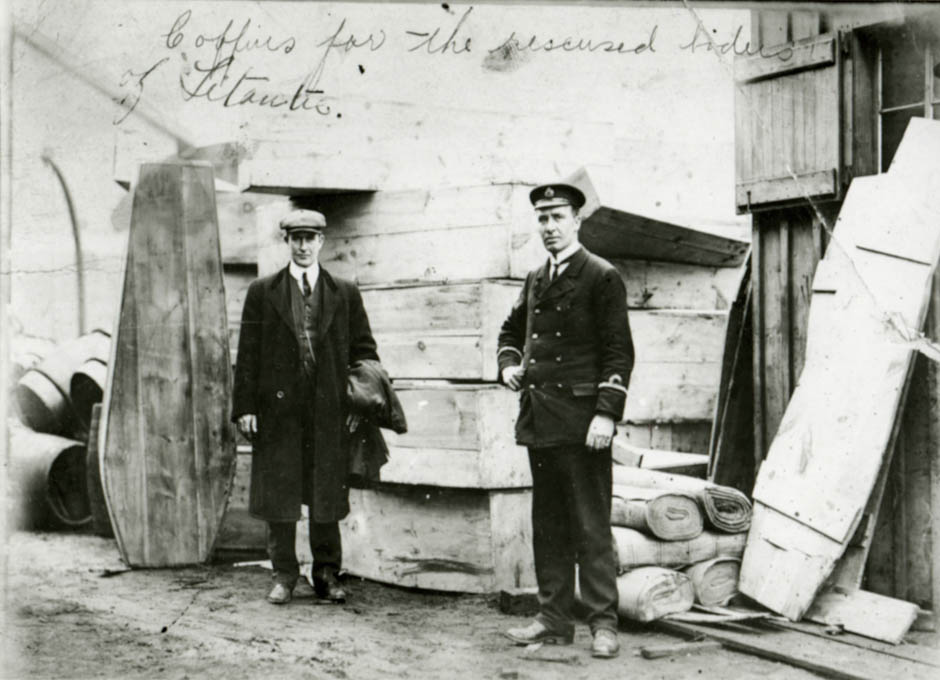 Coffins for the rescused bides
of Titantic.